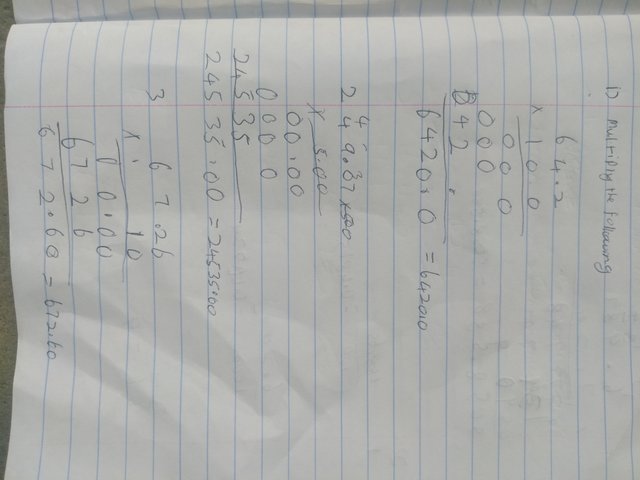 1) Multiply the following
64.2
x 100
000
000
642
6420.0 = 6420.0
4
2 49.07 x 500
x 5.00
00.00
0000
24535
24535.00 = 24535.00
3 67.26
x. 10
00.00
6726
672.60 = 672.60